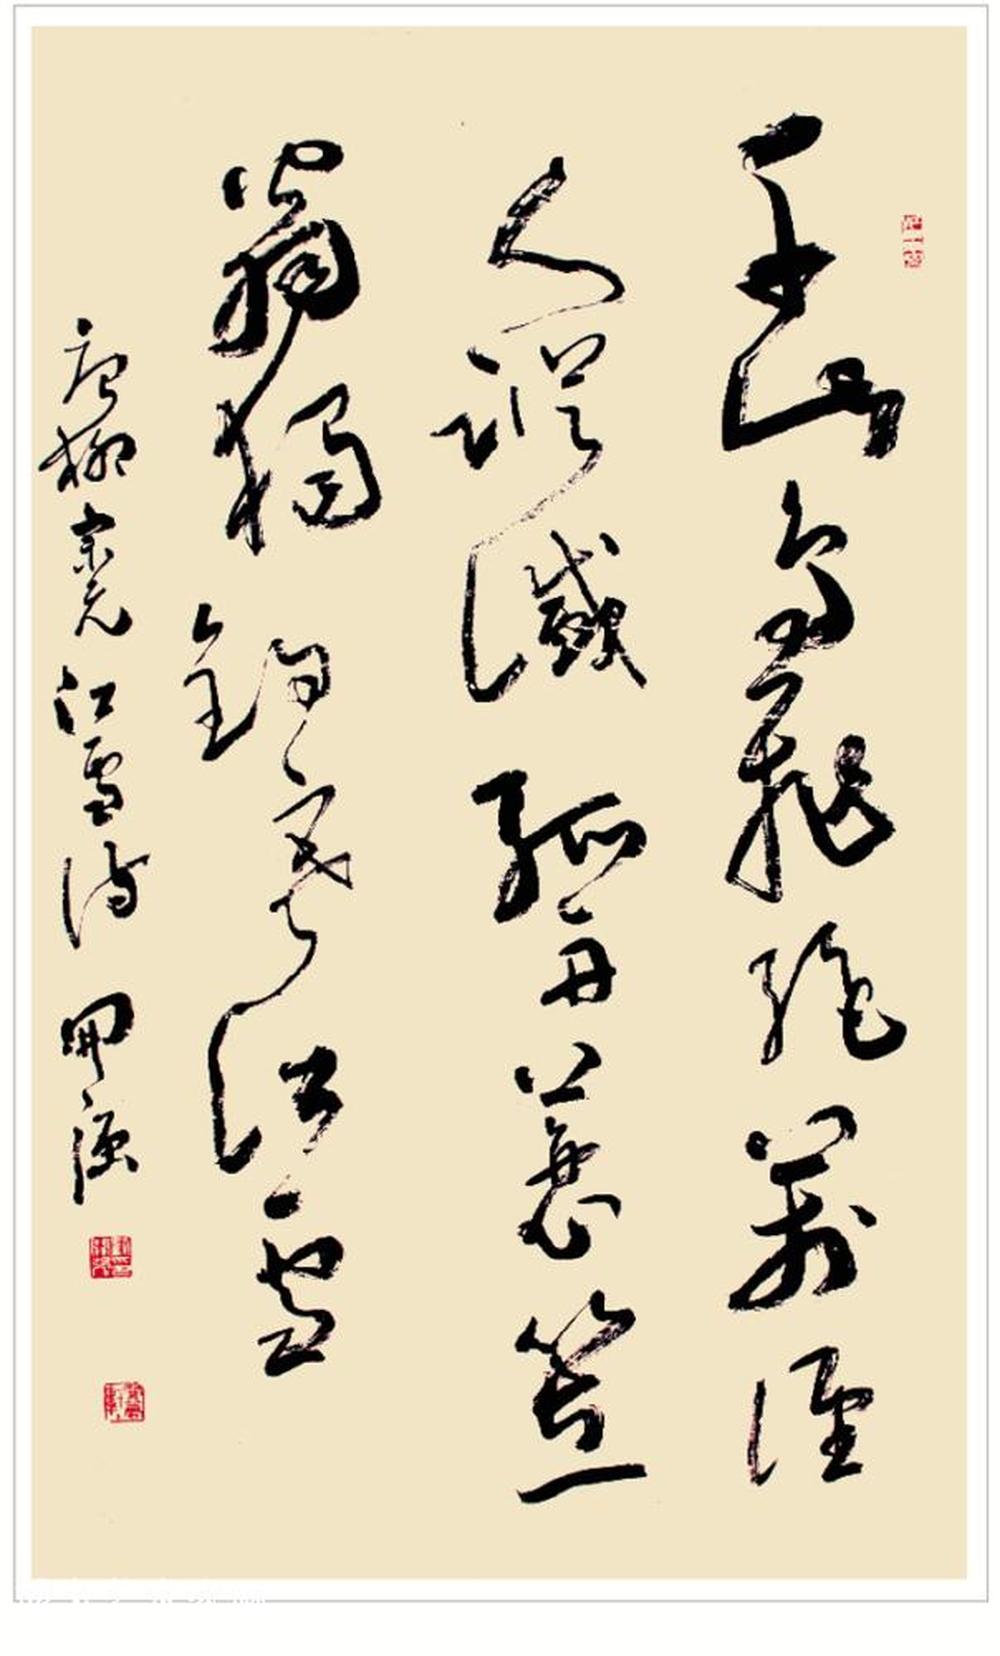 千山鸟飞绝万径
人踪灭孤舟蓑笠
翁独钓寒江雪
唐柳宗元江雪诗 开强